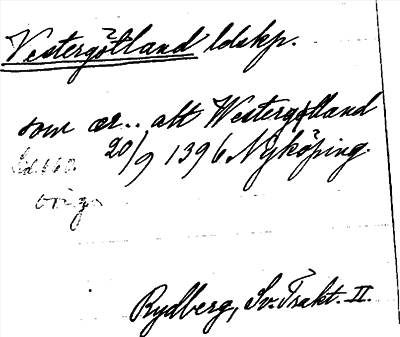 Vestergötland ldskp.
som är.. alt Westergøtland
20/9 1396 Nyköping.
orig.
Rydberg, Sv. Trakt. II.